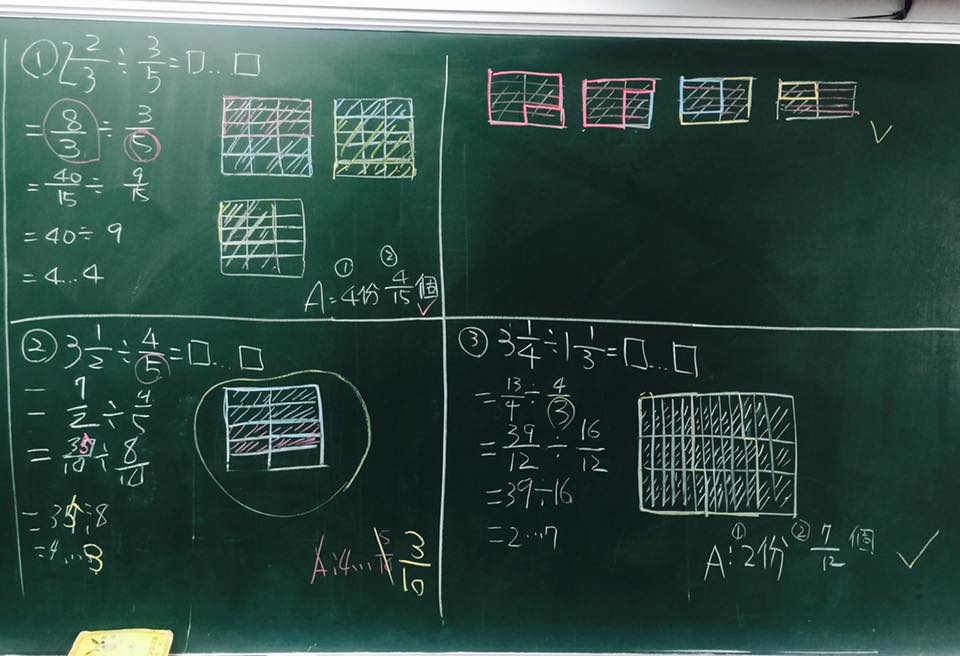 ① 2 2/3 ÷ 3/5 = □…□
= 8/3 ÷ 3/5
= 40/15 ÷ 9/15
= 40÷9
= 4…4
① ②
A:4份 4/15 個
② 3 1/2 ÷ 4/5 = □…□
= 7/2 ÷ 4/5
= 35/10 ÷ 8/10
= 35÷8
= 4…3
A:4… 3/10
③ 3 1/4 ÷ 1 1/3 = □…□
= 13/4 ÷ 4/3
= 39/12 ÷ 16/12
= 39÷16
= 2…7
① ②
A:2份 7/12 個